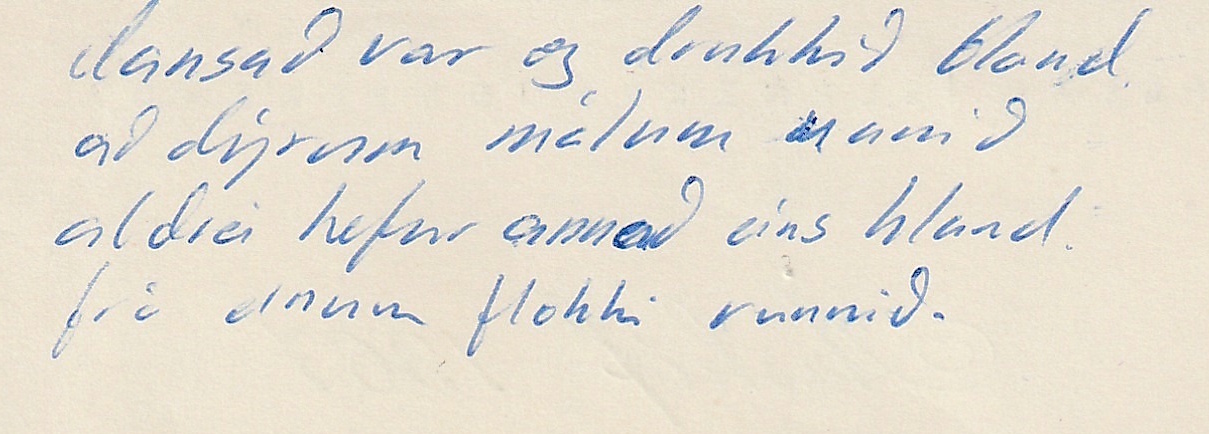 dansað var og drukkið bland.
að dýrum málum unnið
aldrei hefur annað eins hland.
frá einum flokki runnið.